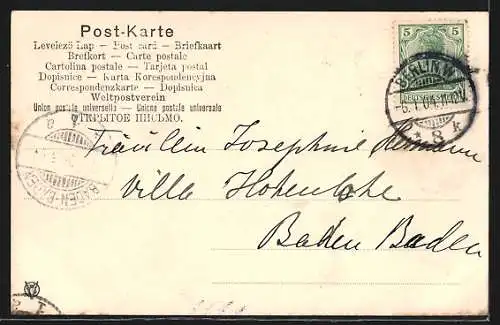 Post-Karte
Levelező Lap — Post card — Briefkaart
Brefkort — Carte postale
Cartolina postale — Tarjeta postal
Dopisnice — Karta Korespondencyjna
Correspondenzkarte — Dopisnica
Weltpostverein
Union postale universelle — Unione postale universale
ОТКРЫТОЕ ПИСЬМО.
5 5
BERLIN, W.
8 k
BADEN-BADEN
Fräulein Josephine
Villa Hohenlohe
Baden Baden